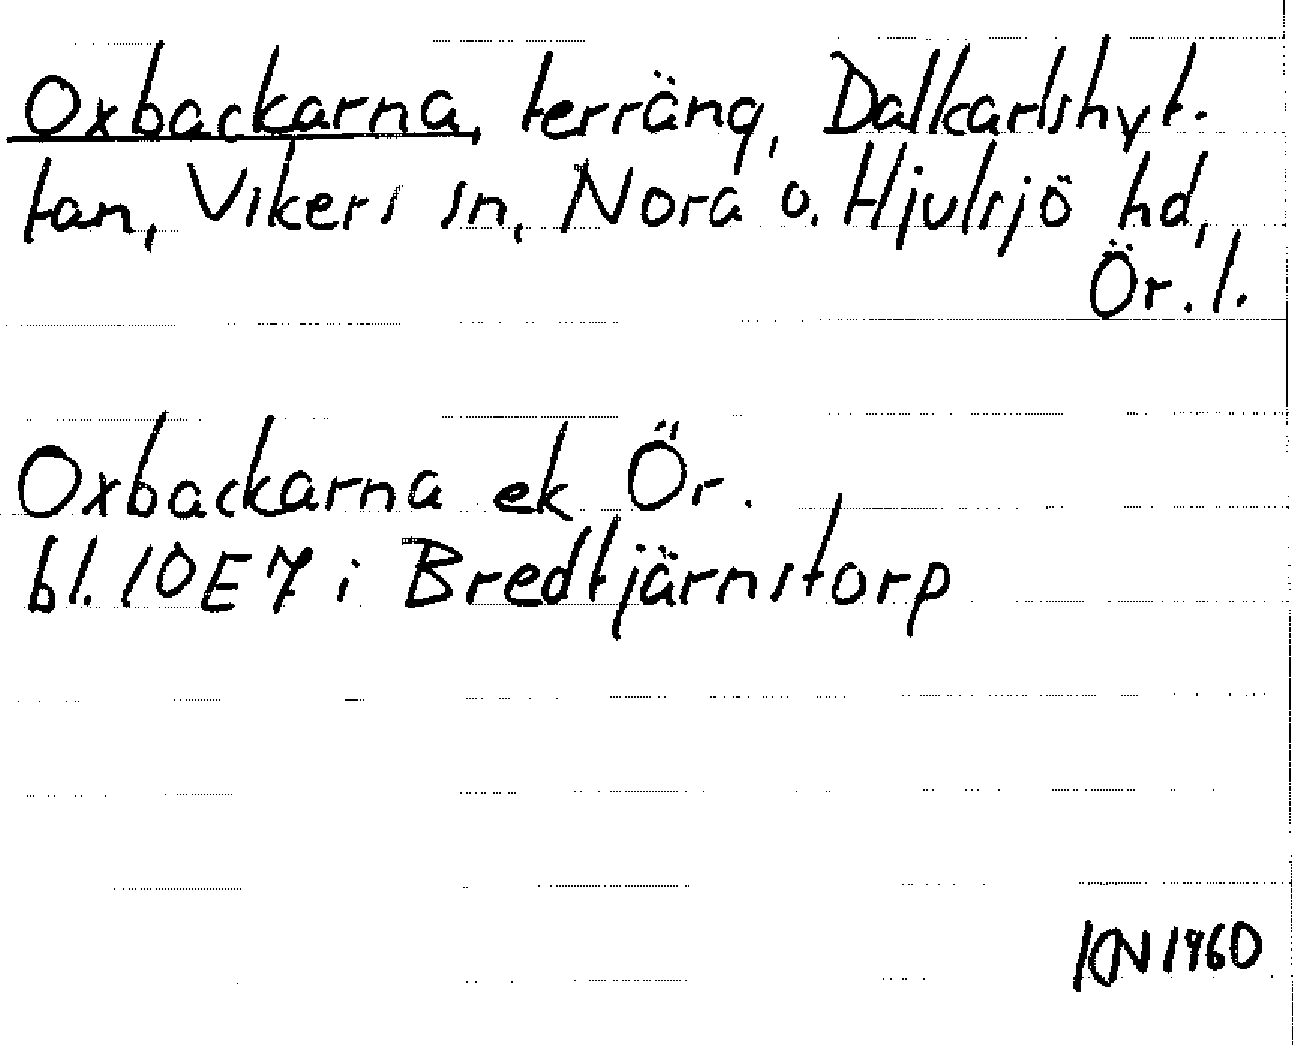 Oxbackarna, terräng, Dalkarlshyt-
tan, Vikers sn, Nora o. Hjulsjö hd,
Ör. l.
Oxbackarna ek Ör.
bl. 10E7 i Bredtjärnstorp
KN 1960